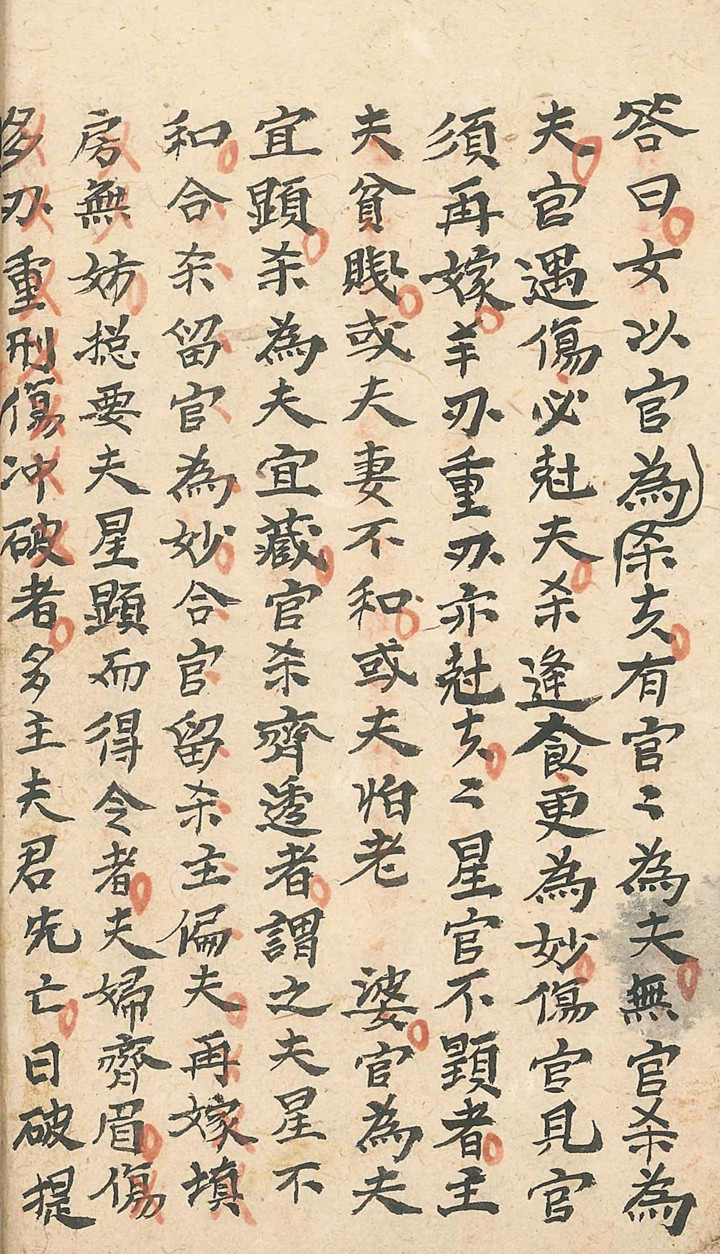 答曰女以官為杀夫有官〻為夫無官杀為
夫官遇傷必尅夫杀逢食更為妙傷官見官
須再嫁羊刃重刃亦尅夫〻星官不顕者主
夫貧賎或夫妻不和或夫怕老 婆官為夫
宜顕杀為夫宜藏官杀齊透者謂之夫星不
和合杀留官為妙合官留杀主偏夫再嫁填
房無姊揔要夫星顕而得令者夫婦齊眉傷
多刃重刑傷冲破者多主夫君先亡日破提